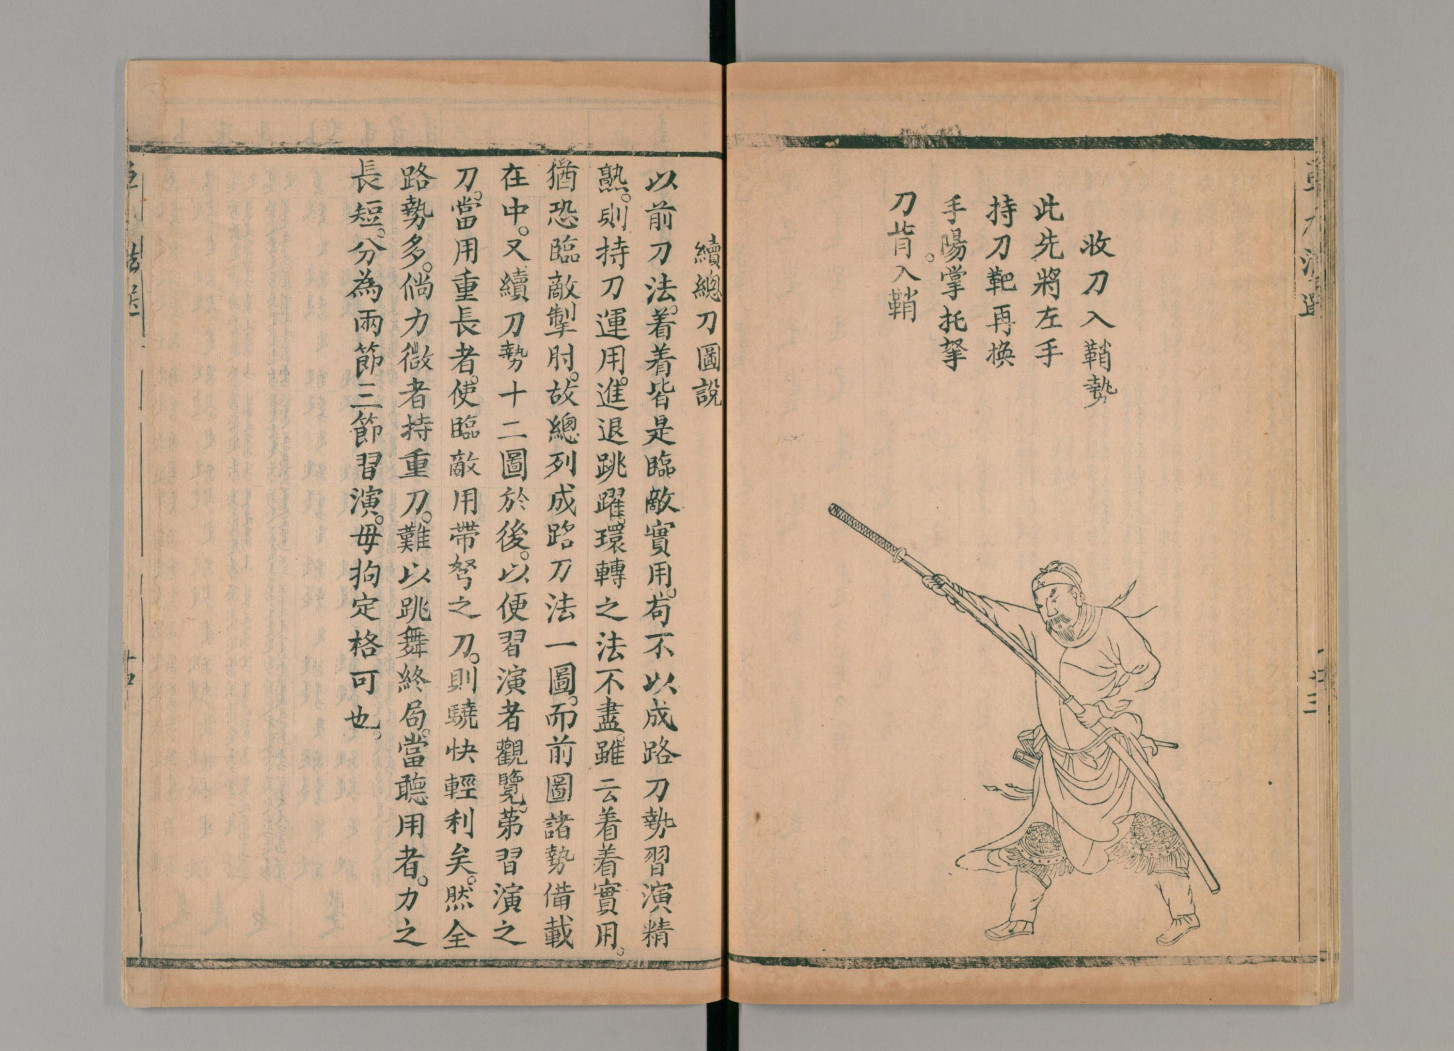 收刀入鞘勢
此先將左手
持刀靶再換
手陽掌。托拏
刀背入鞘
續總刀圖說
以前刀法。着着皆是臨敵實用。苟不以成路刀勢習演精
熟。則持刀運用。進退跳躍。環轉之法不盡。雖云着着實用。
猶恐臨敵掣肘。故總列成路刀法一圖。而前圖諸勢備載
在中。又續刀勢十二圖於後。以便習演者觀覽。第習演之
刀。當用重長者。使臨敵用帶弩之刀。則驍快輕利矣。然全
路勢多。倘力微者持重刀。難以跳舞終局。當聽用者。力之
長短。分為兩節三節習演。毋拘定格可也。